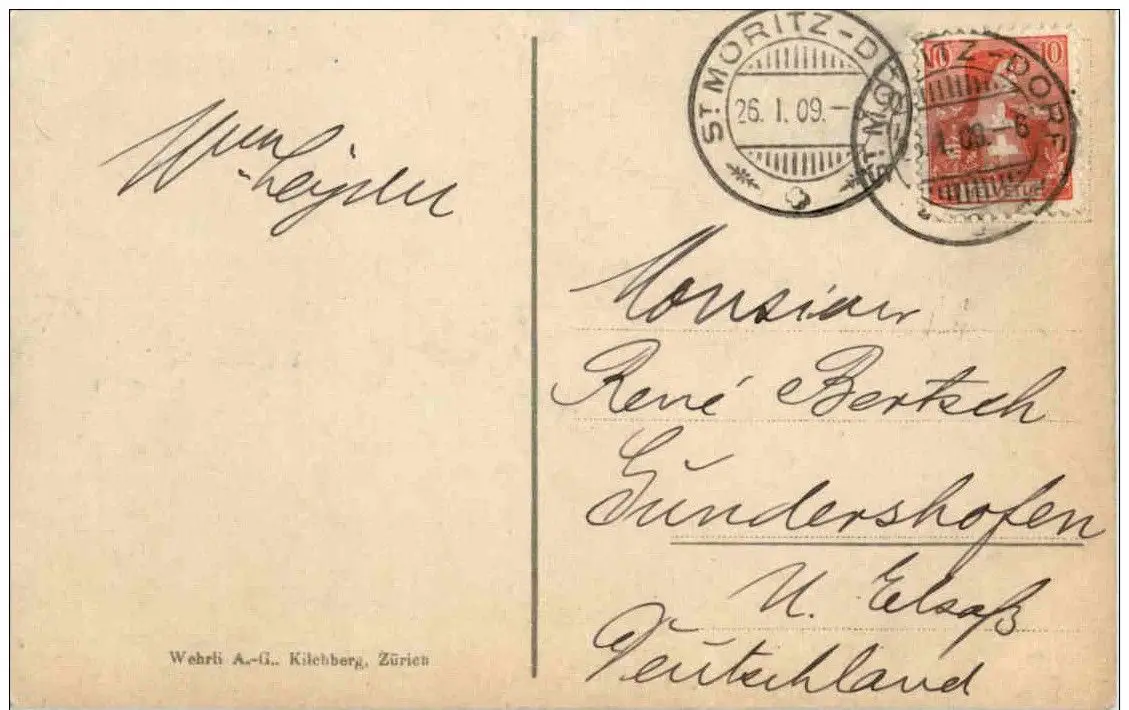 ST MORITZ-DORF
26. I. 09.-
ST MORITZ-DORF
I. 09.-6
10 10
Monsieur
René Bertsch
Gundershofen
U. Elsaß
Deutschland
Wehrli A.-G., Kilchberg, Zürich